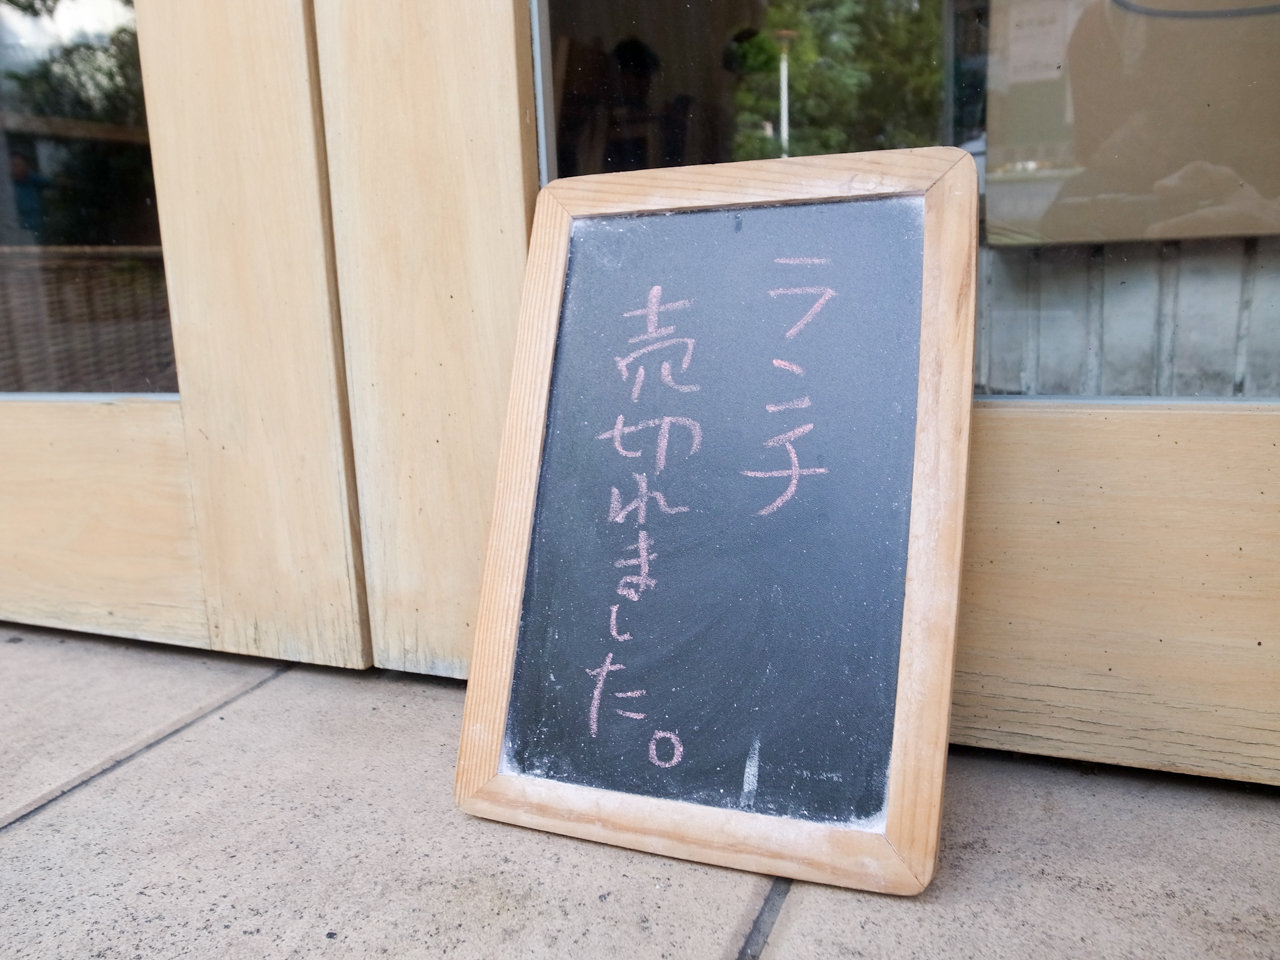 ランチ
売切れました。